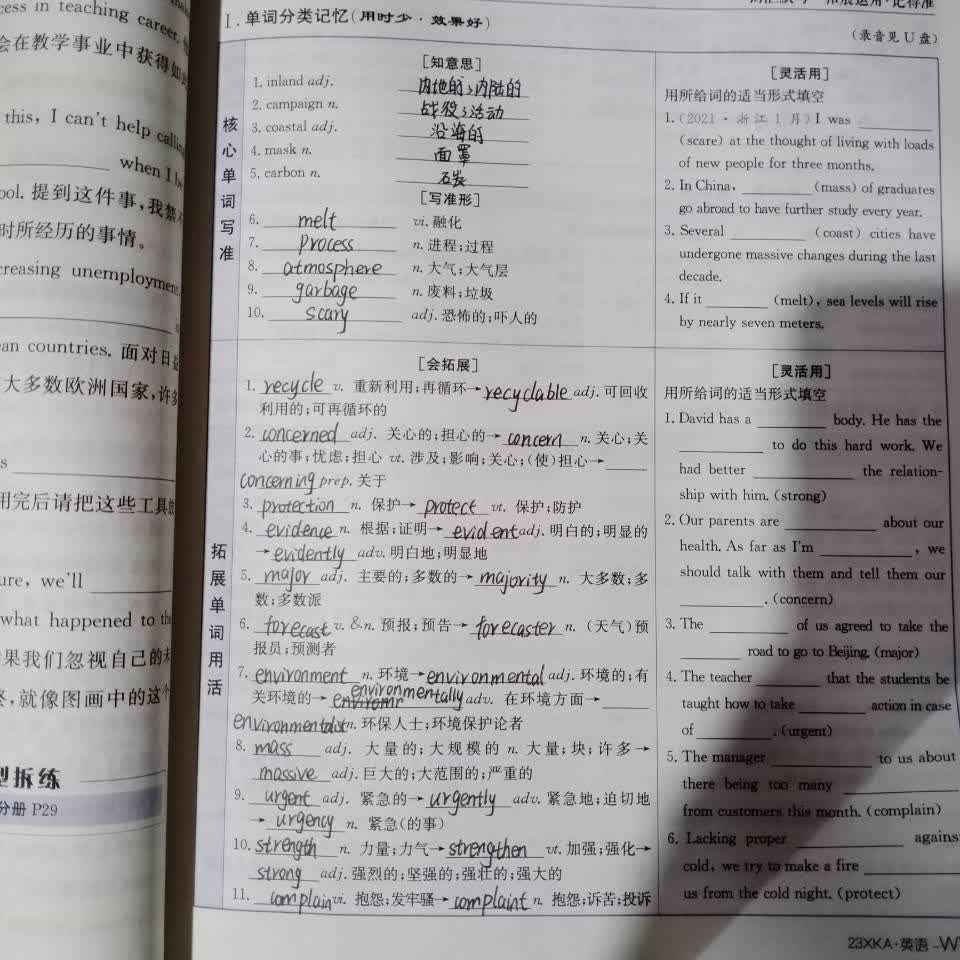 cess in teaching career.
会在教学事业中获得如
this, I can't help calling
when I
ool. 提到这件事,我禁
时所经历的事情。
creasing unemployment
ean countries. 面对日益
大多数欧洲国家,许多
s
用完后请把这些工具
ure, we'll
what happened to the
果我们忽视自己的
终,就像图画中的这个
型拆练
分册 P29
Ⅰ.单词分类记忆(用时少·效果好)
(录音见U盘)
核心单词写准
[知意思]
1. inland adj. 内地的;内陆的
2. campaign n. 战役;活动
3. coastal adj. 沿海的
4. mask n. 面罩
5. carbon n. 碳
[写准形]
6. melt vi. 融化
7. process n. 进程;过程
8. atmosphere n. 大气;大气层
9. garbage n. 废料;垃圾
10. scary adj. 恐怖的;吓人的
[灵活用]
用所给词的适当形式填空
1. (2021·浙江1月) I was
(scare) at the thought of living with loads
of new people for three months.
2. In China, (mass) of graduates
go abroad to have further study every year.
3. Several (coast) cities have
undergone massive changes during the last
decade.
4. If it (melt), sea levels will rise
by nearly seven meters.
拓展单词用活
[会拓展]
1. recycle v. 重新利用;再循环→recyclable adj. 可回收
利用的;可再循环的
2. concerned adj. 关心的;担心的→concern n. 关心;关
心的事;忧虑;担心 vt. 涉及;影响;关心;(使)担心→
concerning prep. 关于
3. protection n. 保护→protect vt. 保护;防护
4. evidence n. 根据;证明→evident adj. 明白的;明显的
→evidently adv. 明白地;明显地
5. major adj. 主要的;多数的→majority n. 大多数;多
数;多数派
6. forecast v. &n. 预报;预告→forecaster n. (天气)预
报员;预测者
7. environment n. 环境→environmental adj. 环境的;有
关环境的→environmentally adv. 在环境方面→
environmentalist n. 环保人士;环境保护论者
8. mass adj. 大量的;大规模的 n. 大量;块;许多→
massive adj. 巨大的;大范围的;严重的
9. urgent adj. 紧急的→urgently adv. 紧急地;迫切地
→urgency n. 紧急(的事)
10. strength n. 力量;力气→strengthen vt. 加强;强化→
strong adj. 强烈的;坚强的;强壮的;强大的
11. complain vi. 抱怨;发牢骚→complaint n. 抱怨;诉苦;投诉
[灵活用]
用所给词的适当形式填空
1. David has a body. He has the
to do this hard work. We
had better the relation-
ship with him. (strong)
2. Our parents are about our
health. As far as I'm , we
should talk with them and tell them our
. (concern)
3. The of us agreed to take the
road to go to Beijing. (major)
4. The teacher that the students be
taught how to take action in case
of . (urgent)
5. The manager to us about
there being too many
from customers this month. (complain)
6. Lacking proper agains
cold, we try to make a fire
us from the cold night. (protect)
23XKA·英语